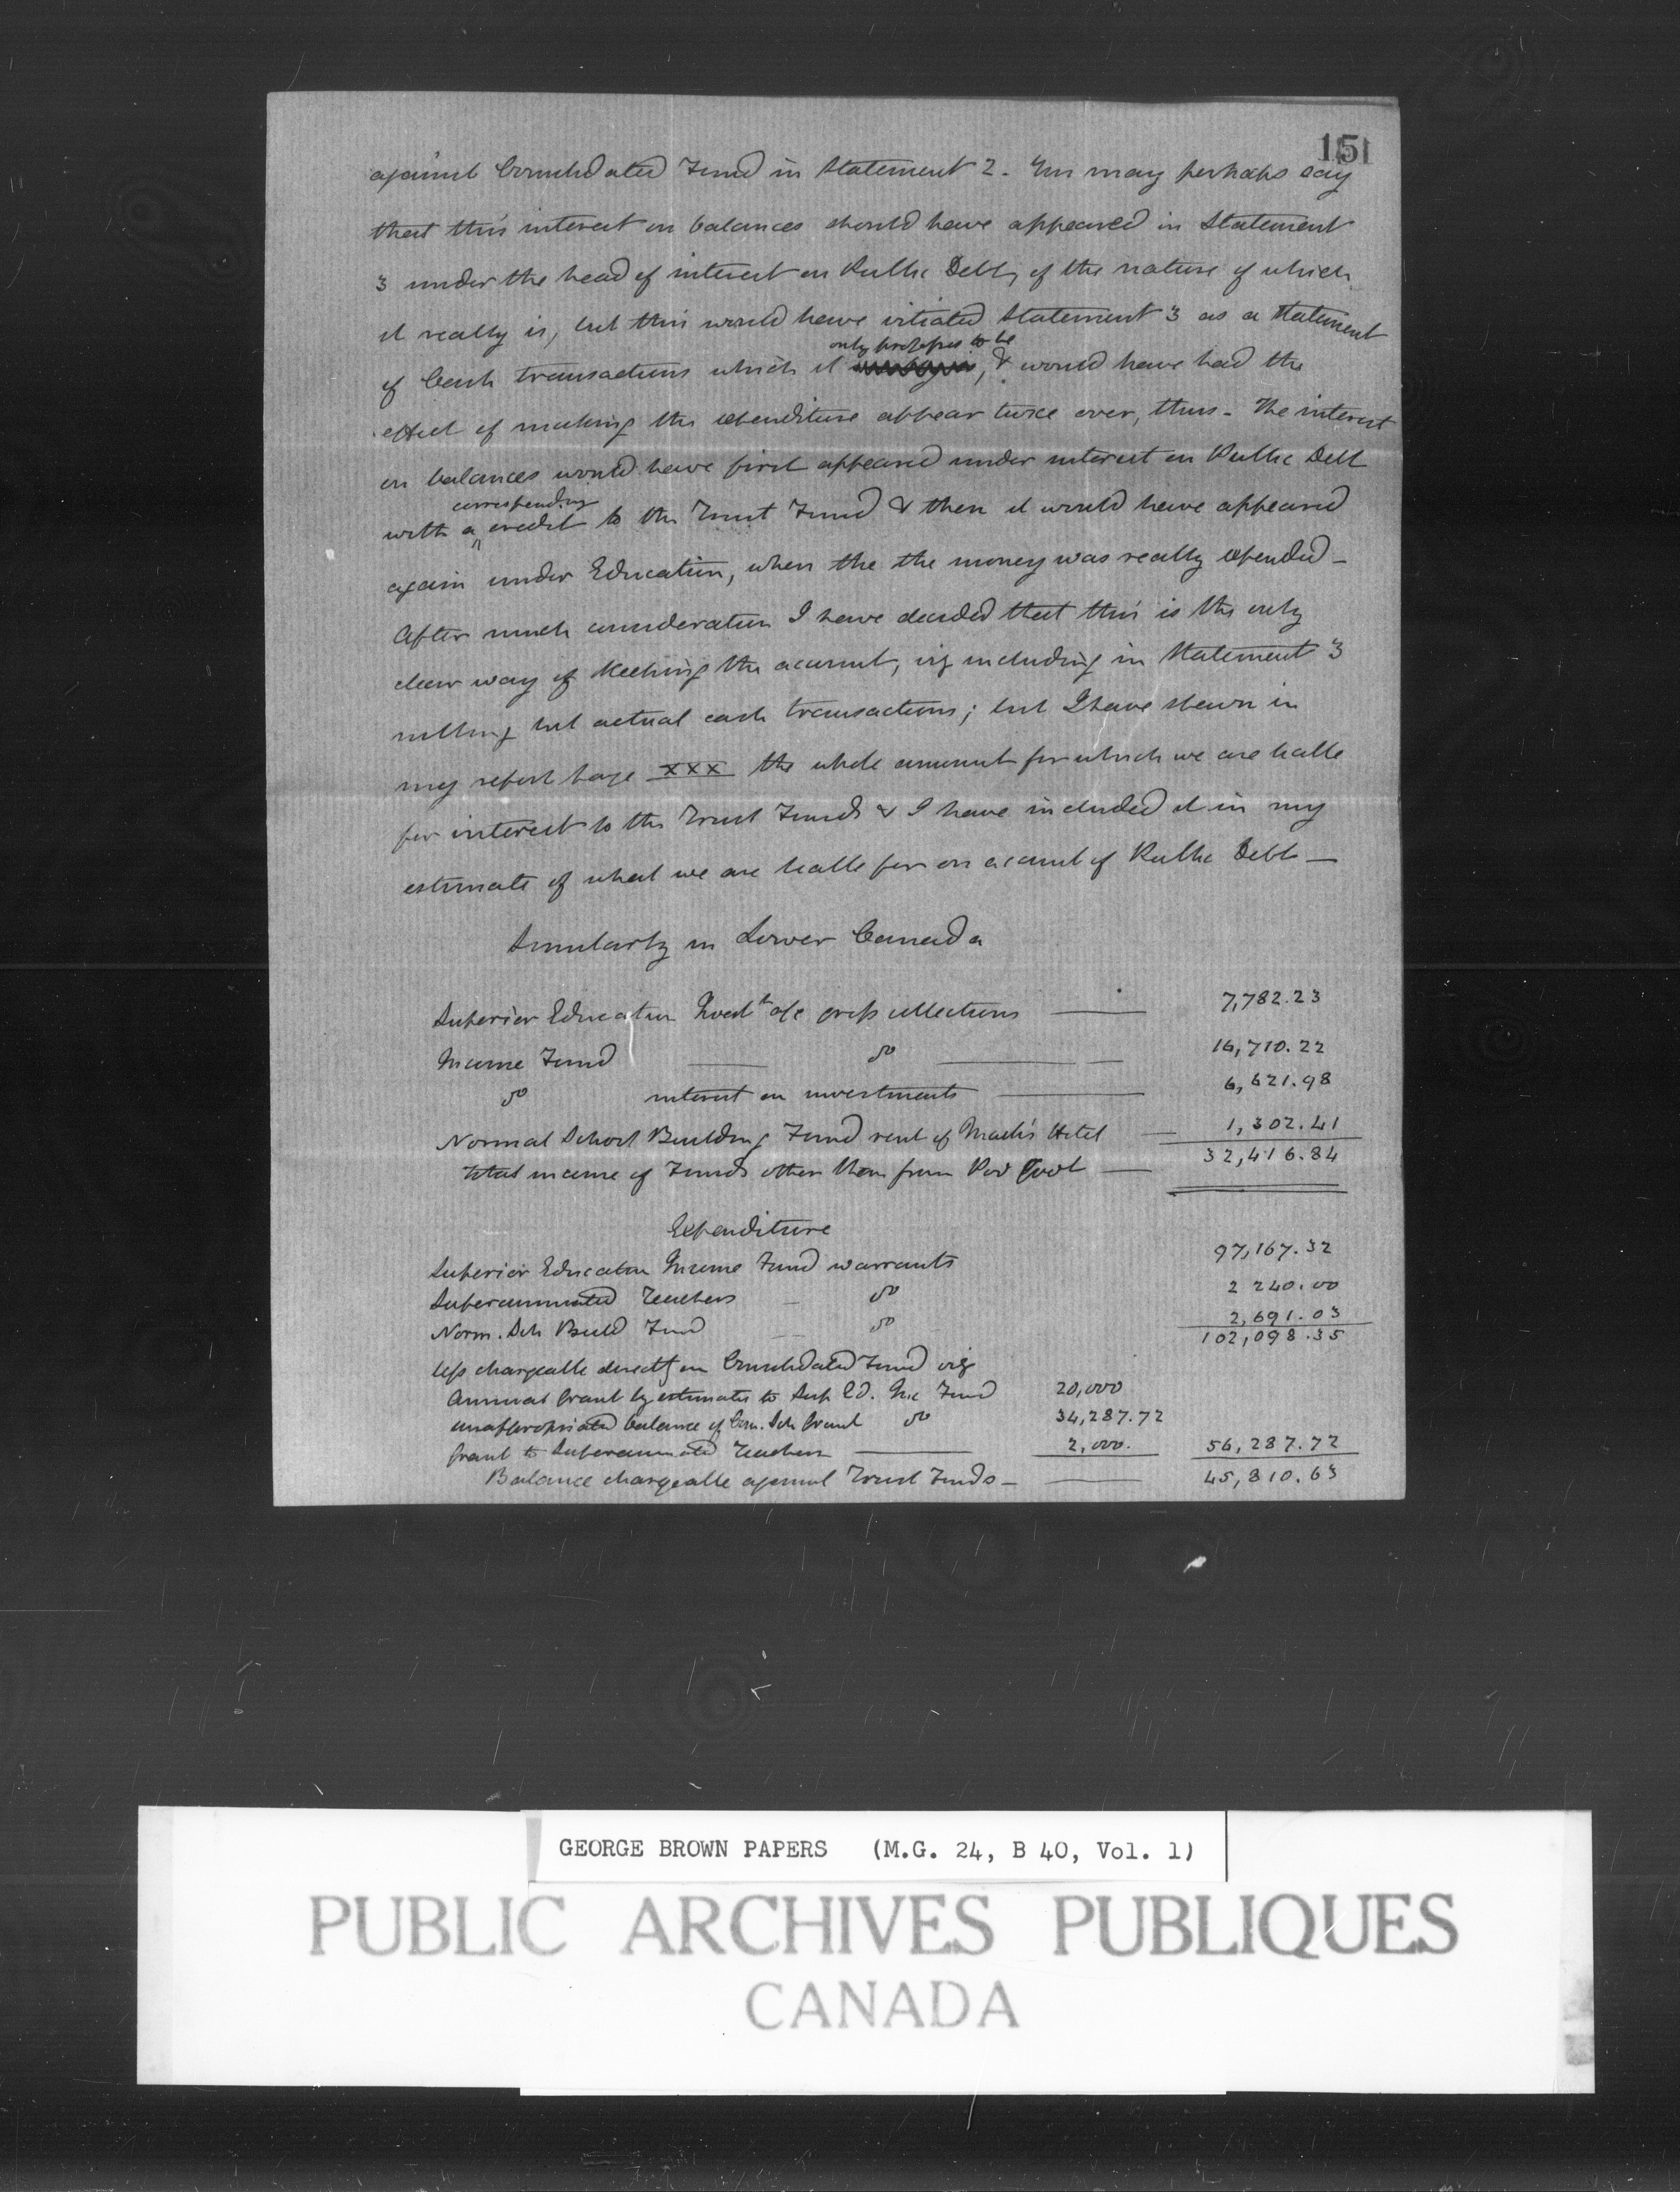 151
against Consolidated Fund in Statement 2. You may perhaps say
that this interest on balances should have appeared in Statement
3 under the head of interest on Public Debt, of the nature of which
it really is, but this would have vitiated Statement 3 as a Statement
only professes to be
of Cash transactions which it , & would have had the
effect of making the expenditure appear twice over, thus - The interest
on balances would have first appeared under interest on Public Debt
corresponding
with a credit to the Trust Fund & then it would have appeared
again under Education, when the the money was really expended -
After much consideration I have decided that this is the only
clear way of keeping the account, viz including in Statement 3
nothing but actual cash transactions; but I have shewn in
my report page xxx the whole amount for which we are liable
for interest to the Trust Funds & I have included it in my
estimate of what we are liable for on account of Public Debt -
Similarly in Lower Canada
Superior Education Invest a/c gross collections 7,782.23
Income Fund do 16,710.22
do interest on investments 6,621.98
Normal School Building Fund rent of Mack's Hotel 1,302.41
Total income of Funds other than from Pov Govt 32,416.84
Expenditure
Superior Education Income Fund warrants 97,167.32
Superannuated Teachers do 2 240.00
Norm. Sch Build Fund do 2,691.03
102,098.35
less chargeable directly on Consolidated Fund viz
Annual Grant by estimates to Sup Ed. Inc Fund 20,000
unappropriated balance of Com. Sch Grant do 34,287.72
Grant to Superannuated Teachers 2,000. 56,287.72
Balance chargeable against Trust Funds - 45,810.63
GEORGE BROWN PAPERS (M.G. 24, B 40, Vol. 1)
PUBLIC ARCHIVES PUBLIQUES
CANADA